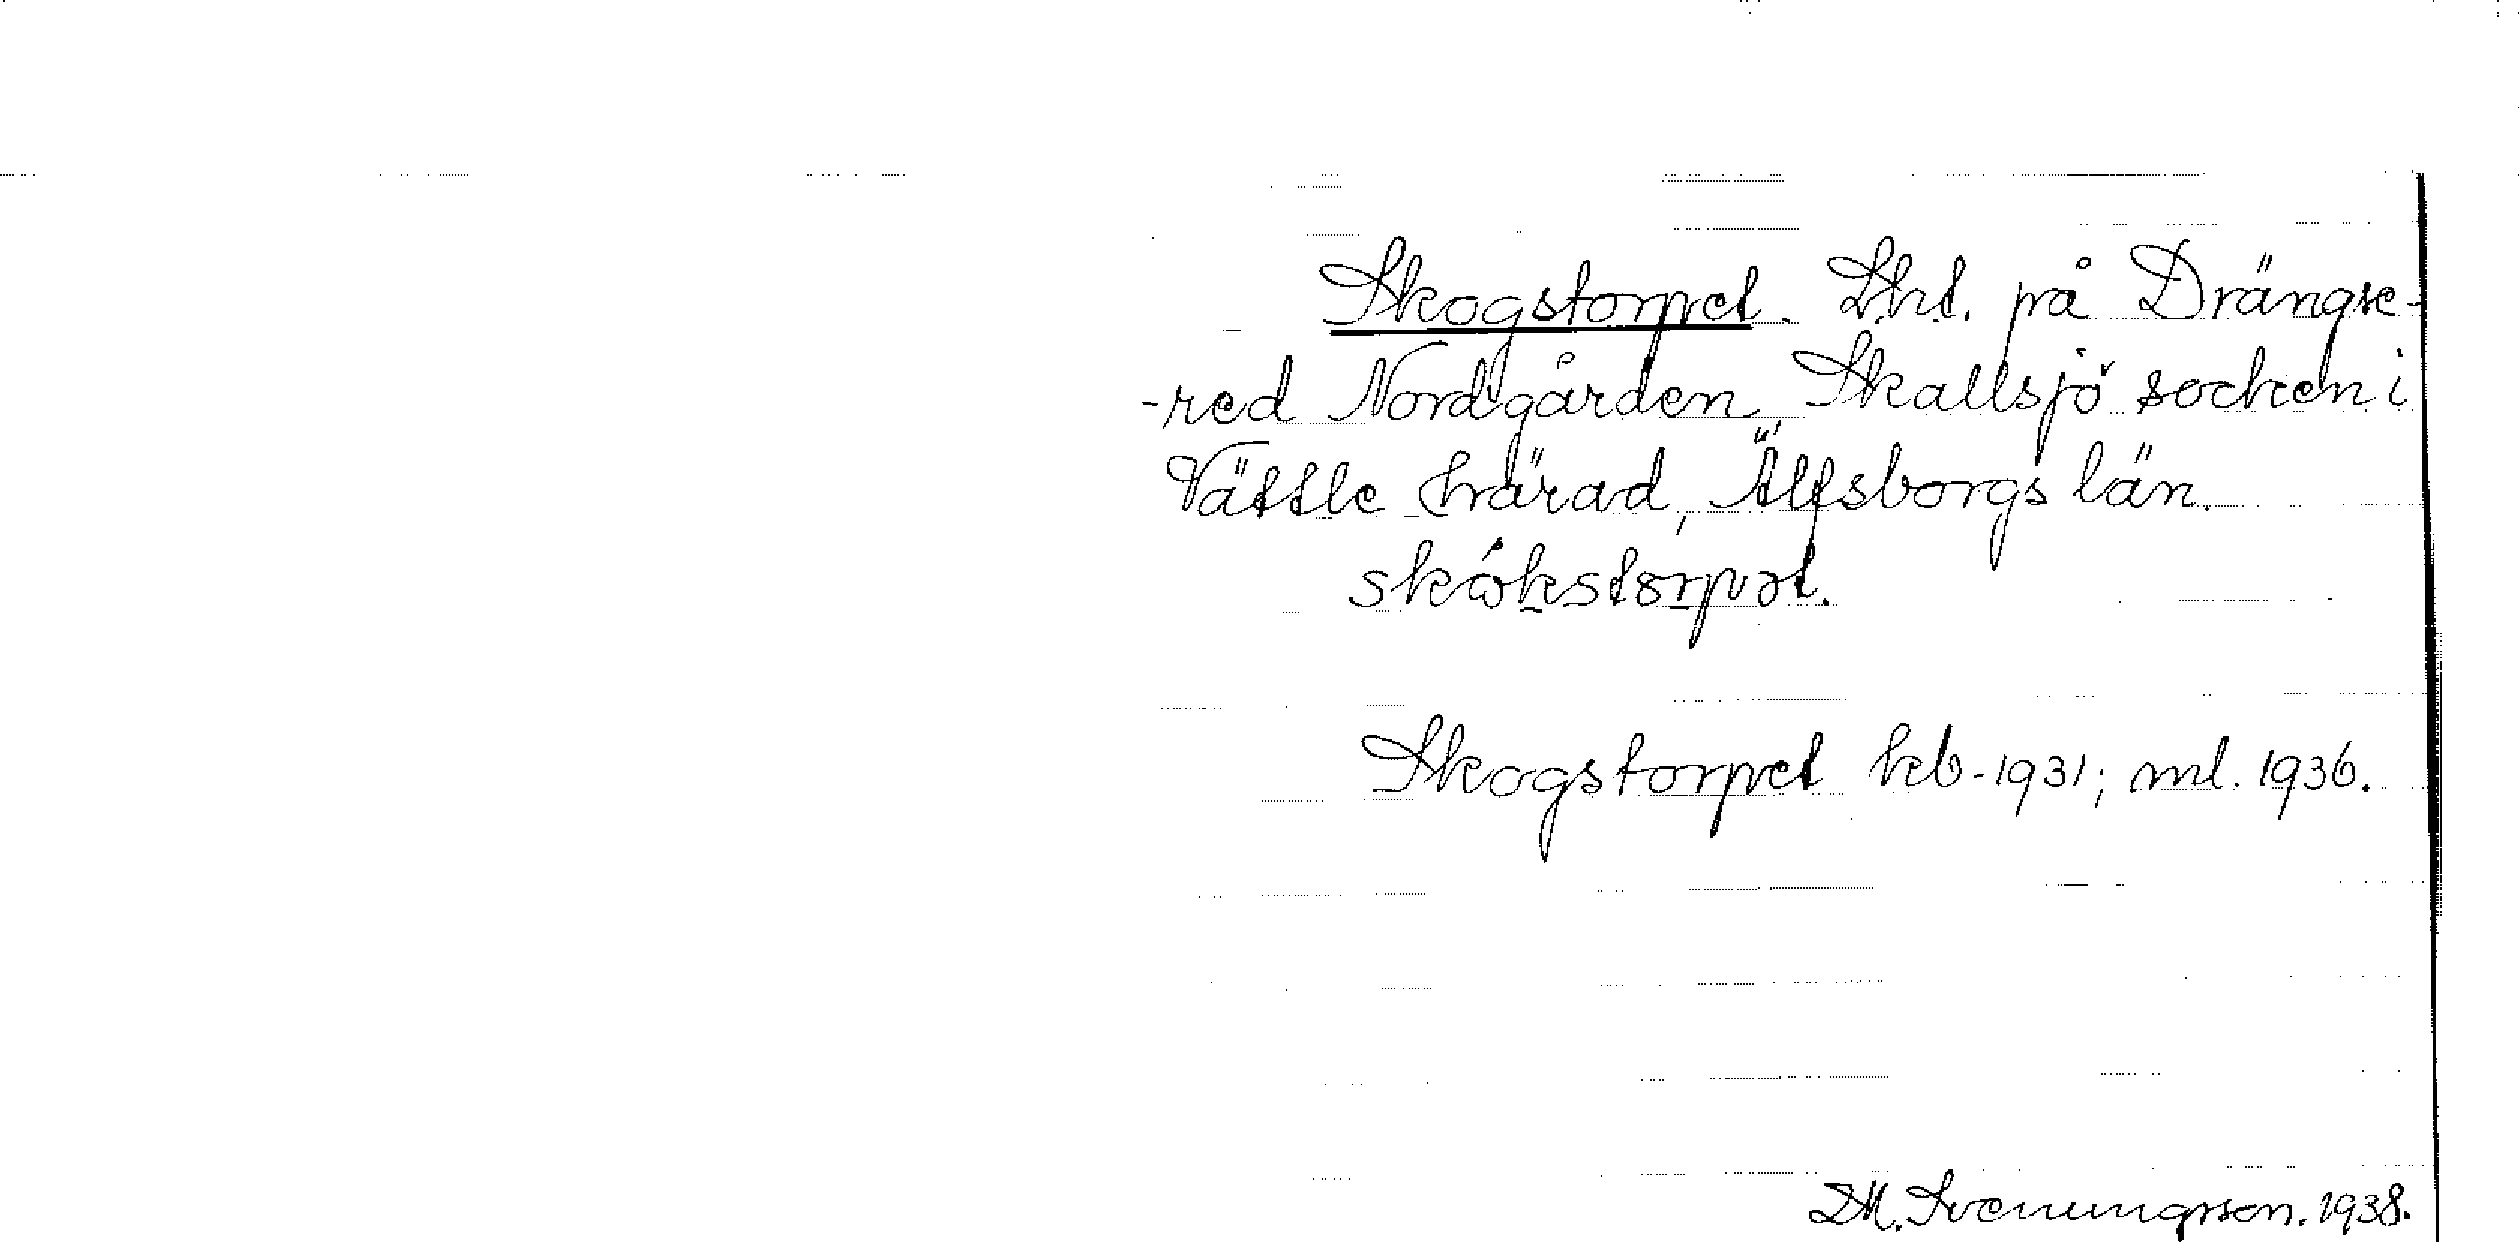 Skogstorpet. Lht. på Drängse-
-red Nordgården, Skallsjö socken i
Vättle härad, Älfsborgs län.
skókstorpət.
Skogstorpet kb-1931; ml. 1936.
D.M. Svenungsson. 1938.